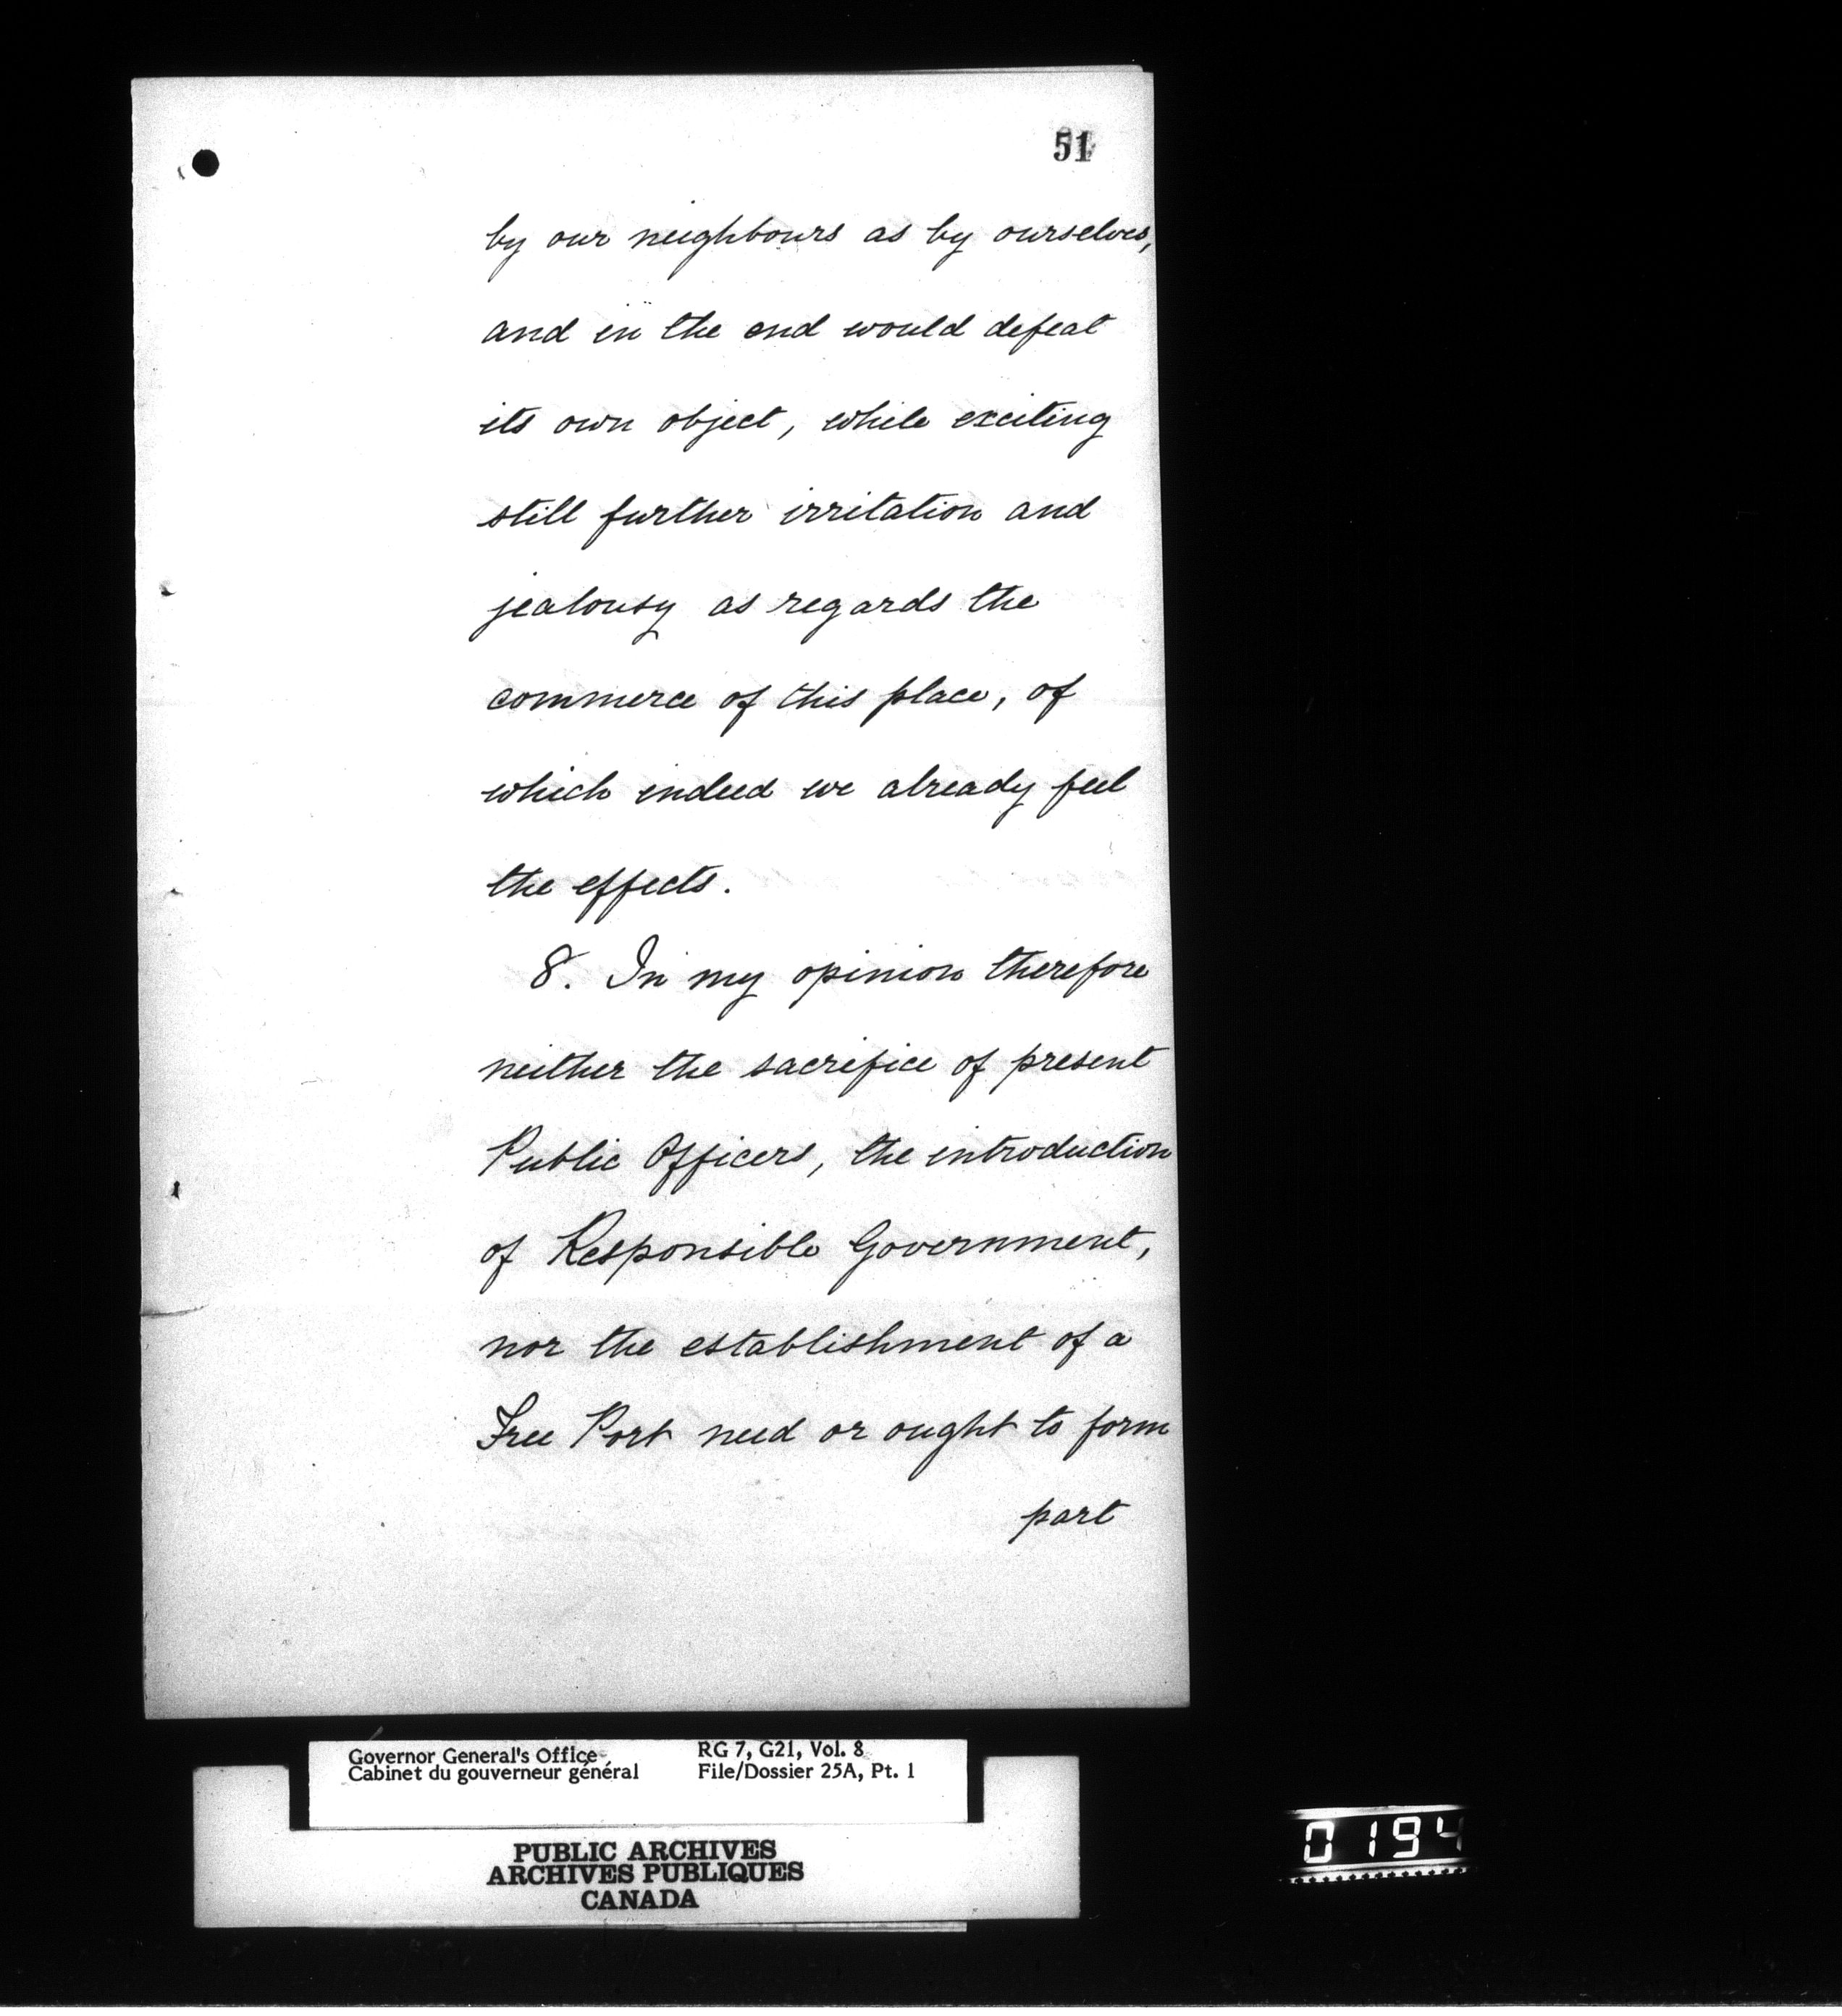 51
by our neighbours as by ourselves,
and in the end would defeat
its own object, while exciting
still further irritation and
jealousy as regards the
commerce of this place, of
which indeed we already feel
the effects.
8. In my opinion therefore
neither the sacrifice of present
Public Officers, the introduction
of Responsible Government,
nor the establishment of a
Free Port need or ought to form
part
Governor General's Office
Cabinet du gouverneur général
RG 7, G21, Vol. 8
File/Dossier 25A, Pt. 1
PUBLIC ARCHIVES
ARCHIVES PUBLIQUES
CANADA
0194